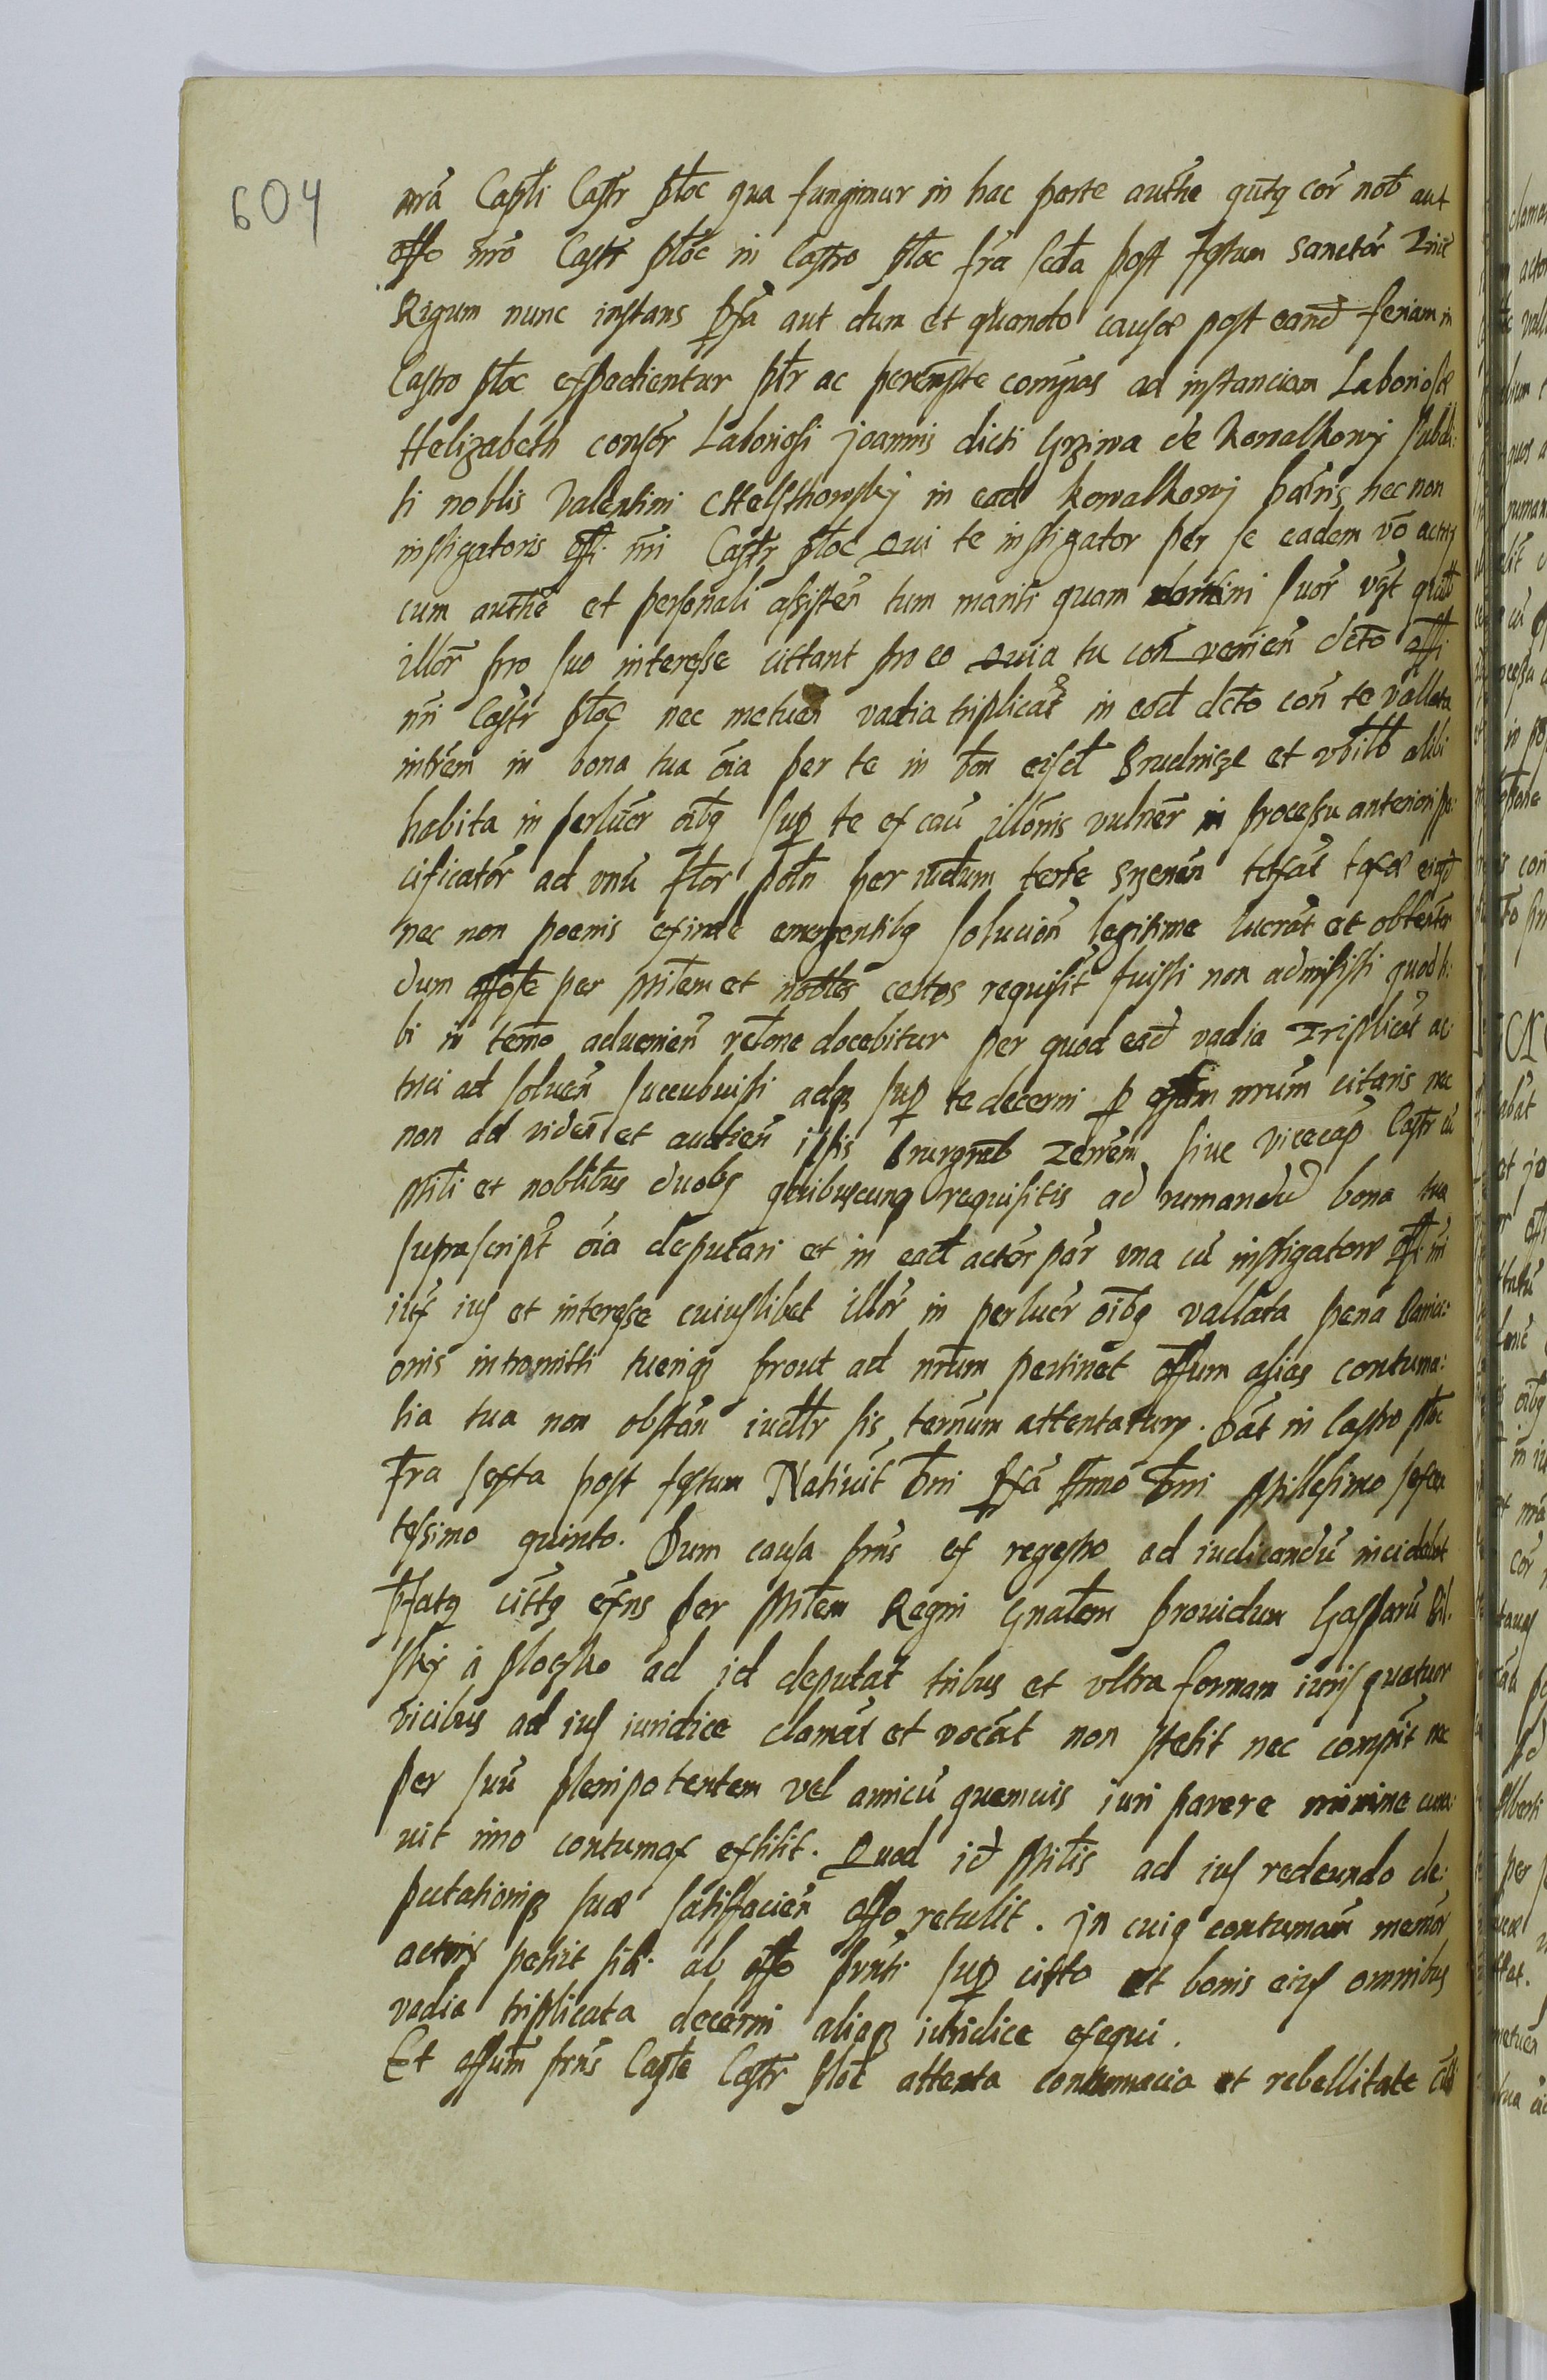 604
nrã Caplĩ Castr ploc qua fungimur in hac parte authẽ qutq cor nob aut
offo nro Castr ploc in Castro ploc fra scda post festum Sanctor Trium
Regum nunc instans pfã aut dum et quando causæ post eand feriam in
Castro ploc expedientur pltr ac perempte compas ad instanciam Laboriosæ
Helizabeth consor Laboriosi joannis dicti Grziwa de Kowalkowj subdi:
ti noblis Valentini Chelsthowskj in ead kowalkowj patris necnon
instigatoris offi nri Castr ploc Qui te instigator per se eadem vo actrix
cum authẽ et personali assisten tum mariti quam domini suor vst qualt
illor pro suo interesse cittant pro eo Quia tu con venien dcto offi
nri Castr ploc nec metuen vadia triplicat in eod dcto con te vallata
intrem in bona tua oia per te in bon eisd Brudnicze et vbilt alibi
habita in perlucr oibq sup te ex cau illonis vulner in processu anteriori spe:
cificator ad vnu flor poln per iudum terre Srenen texat texæ eiusd
nec non poenis exinde emergentibq solucion legitime lucrat et obtenta
dum offose per Milem et nobles certos requisit fuisti non admisisti quod ti:
bi in termo aduenien relone docebitur per quod ead vadia Triplicat ac:
trici ad soluen succubuisti adq sup te decerni p offum nrum citaris nec
non ad viden et audien ipsis Burgrab Terrem siue vicecap Castr cu
Mili et noblibus duobq quibuscunq requisitis ad rumandu bona tua
suprascript oia deputari et in ead actor par vna cu instigatore offi nri
iux ius et interesse cuiuslibet illor in perlucr oibq vallata pena banici:
onis intromitti tueriq prout ad nrum pertinet offum alias contuma:
tia tua non obstan iudltr sis, ternum attentaturus. Dat in Castro ploc
fra sexta post festum Natiuit Dni pfa Anno Dni Millesimo sexcen
tesimo quinto. Dum causa prns ex regestro ad iudicandu incidebat
pfatq cittq exns per Milem Regni Gnalem prouidum Gasparu Bil:
skj a plocsko ad id deputat tribus et vltra formam iuris quatuor
vicibus ad ius iuridice clamat et vocat non stetit nec comparuit nec
per suu plenipotentem vel amicu quemuis iuri parere minime cura:
uit imo contumax extitit. Quod id Milis ad ius redeundo de:
putationiq suæ satisfacien offo retulit. jn cuiq contumam memor
actrix petiit sibi ab offo prnti sup citto et bonis eius omnibus
vadia triplicata decerni aliaq iuridice exequi.
Et offum prns Caple Castr ploc attenta contumacia et rebellitate citti